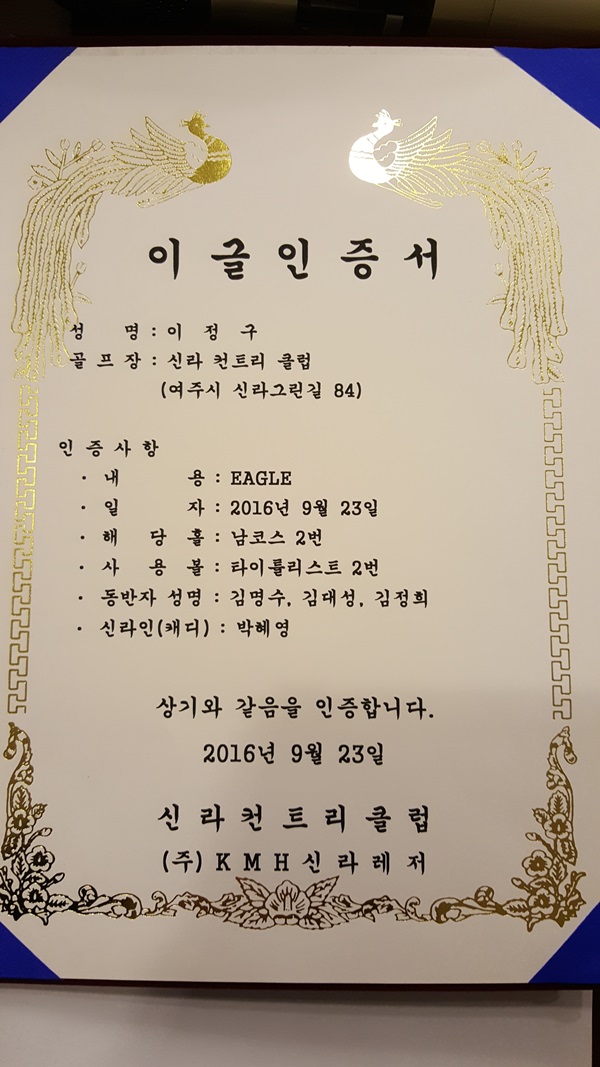 이글인증서
성 명 : 이 정 구
골 프 장 : 신라 컨트리 클럽
(여주시 신라그린길 84)
인 증 사 항
· 내 용 : EAGLE
· 일 자 : 2016년 9월 23일
· 해 당 홀 : 남코스 2번
· 사 용 볼 : 타이틀리스트 2번
· 동반자 성명 : 김명수, 김대성, 김정희
· 신라인(캐디) : 박혜영
상기와 같음을 인증합니다.
2016년 9월 23일
신 라 컨 트 리 클 럽
(주) K M H 신 라 레 저